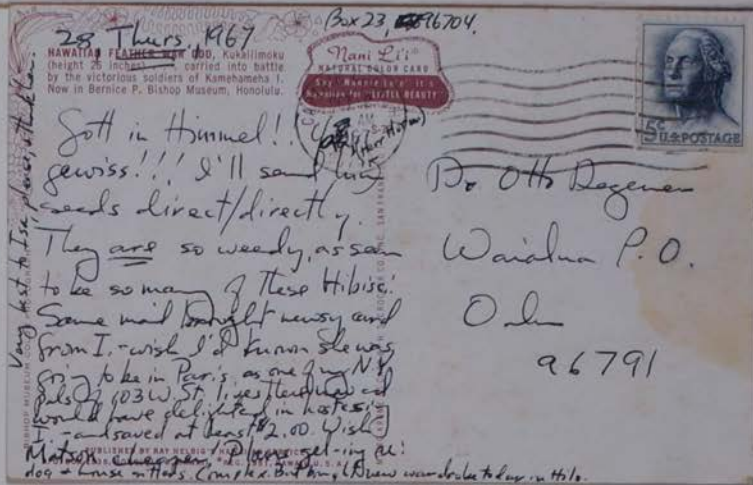 28, Thurs, 1967
Box 23, 96704.
HAWAIIAN FEATHER WAR GOD, Kukailimoku
(height 25 inches) carried into battle
by the victorious soldiers of Kamehameha I.
Now in Bernice P. Bishop Museum, Honolulu.
Nani Li'i
NATURAL COLOR CARD
LITTLE BEAUTY
AM
5c U.S. POSTAGE
Gott in Himmel!!
gewiss!!! I'll send
seeds direct/directly.
They are so weedy, as seem
to be so many of these Hibisci.
Same mail brought newsy card
from I. - wish I'd known she was
going to be in Paris, as one of my N.Y.
pals of 103 W. St. lives there now and
would have delighted in hostessing
I. - and saved at least $2.00. Wish
Matson cheaper! Plane get-ing
dog & house sitters complex. But bought new wardrobe today in Hilo.
Very best to Isa, please,
Dr Otto Degener
Waialua P.O.
Oahu
96791
PUBLISHED BY RAY HELBIG'S HAWAIIAN SERVICE